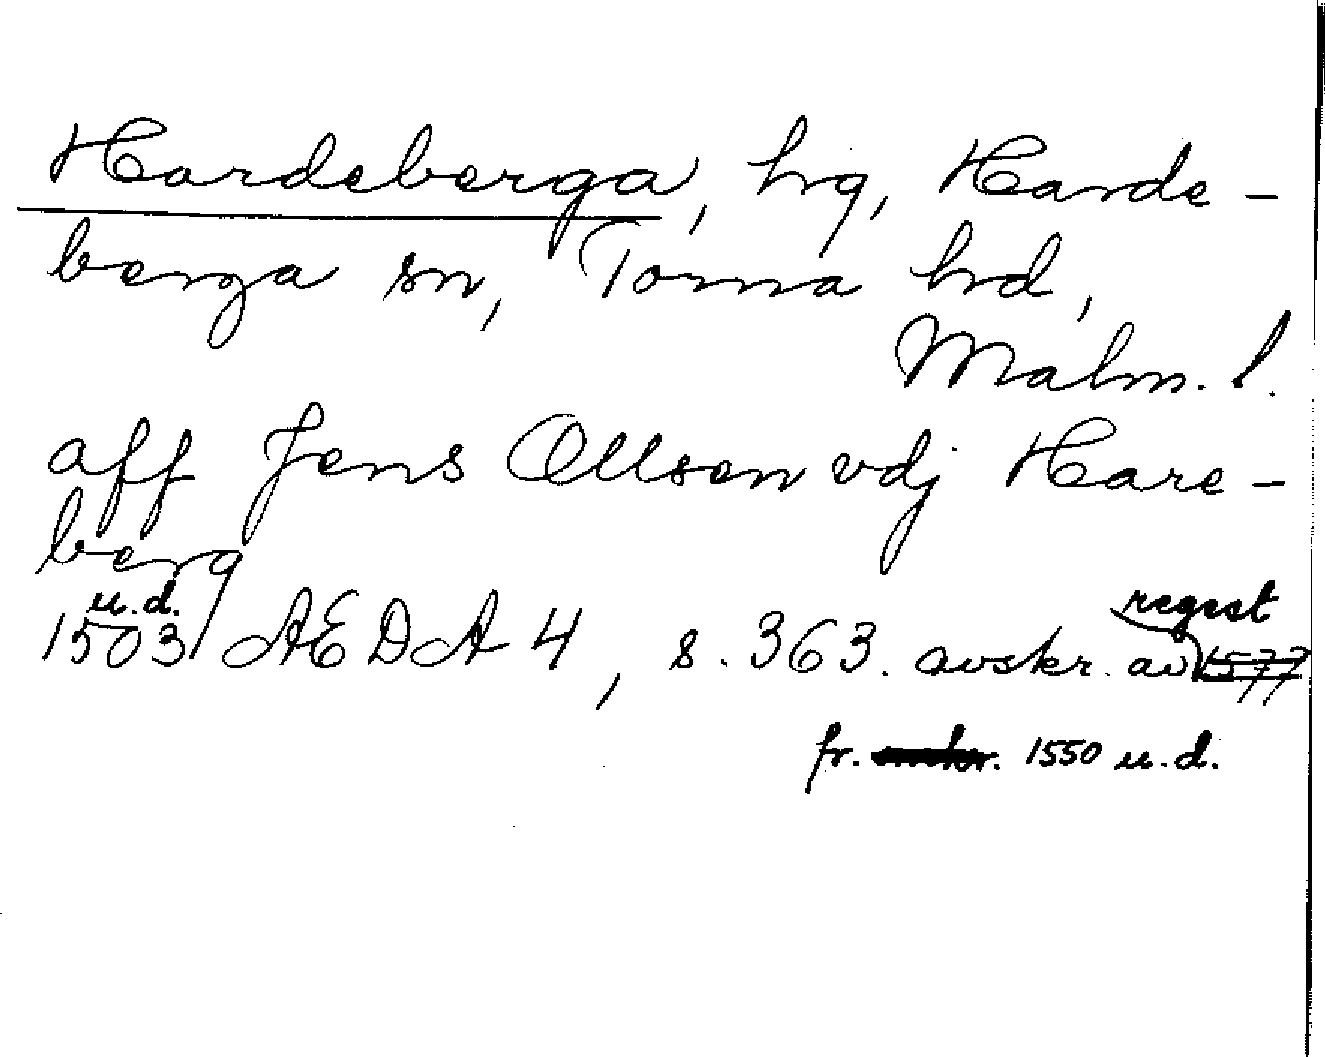 Hardeberga, hg, Harde-
berga sn, Torna hrd,
Malm. l.
aff Jens Ollsen vdj Hare-
berg
u.d. regest
1503 AEDA 4, s. 363. avskr. av 1577
fr. 1550 u.d.